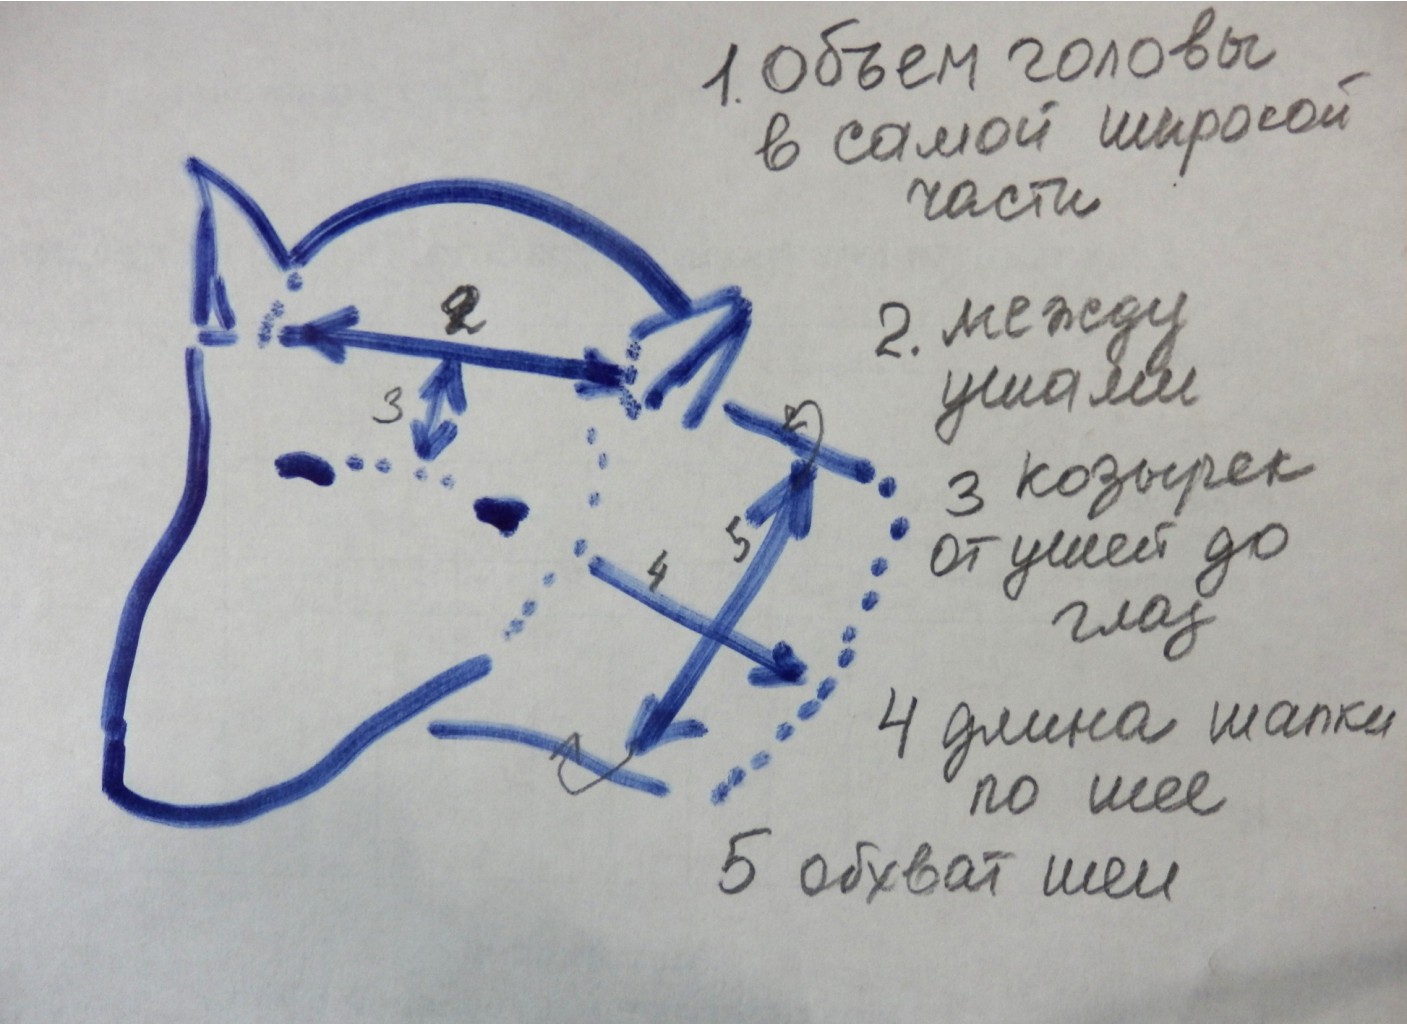 1. Объем головы
в самой широкой
части
2
3
2. между
ушами
3 козырек
от ушей до
глаз
5
4
4 длина шапки
по шее
5 обхват шеи